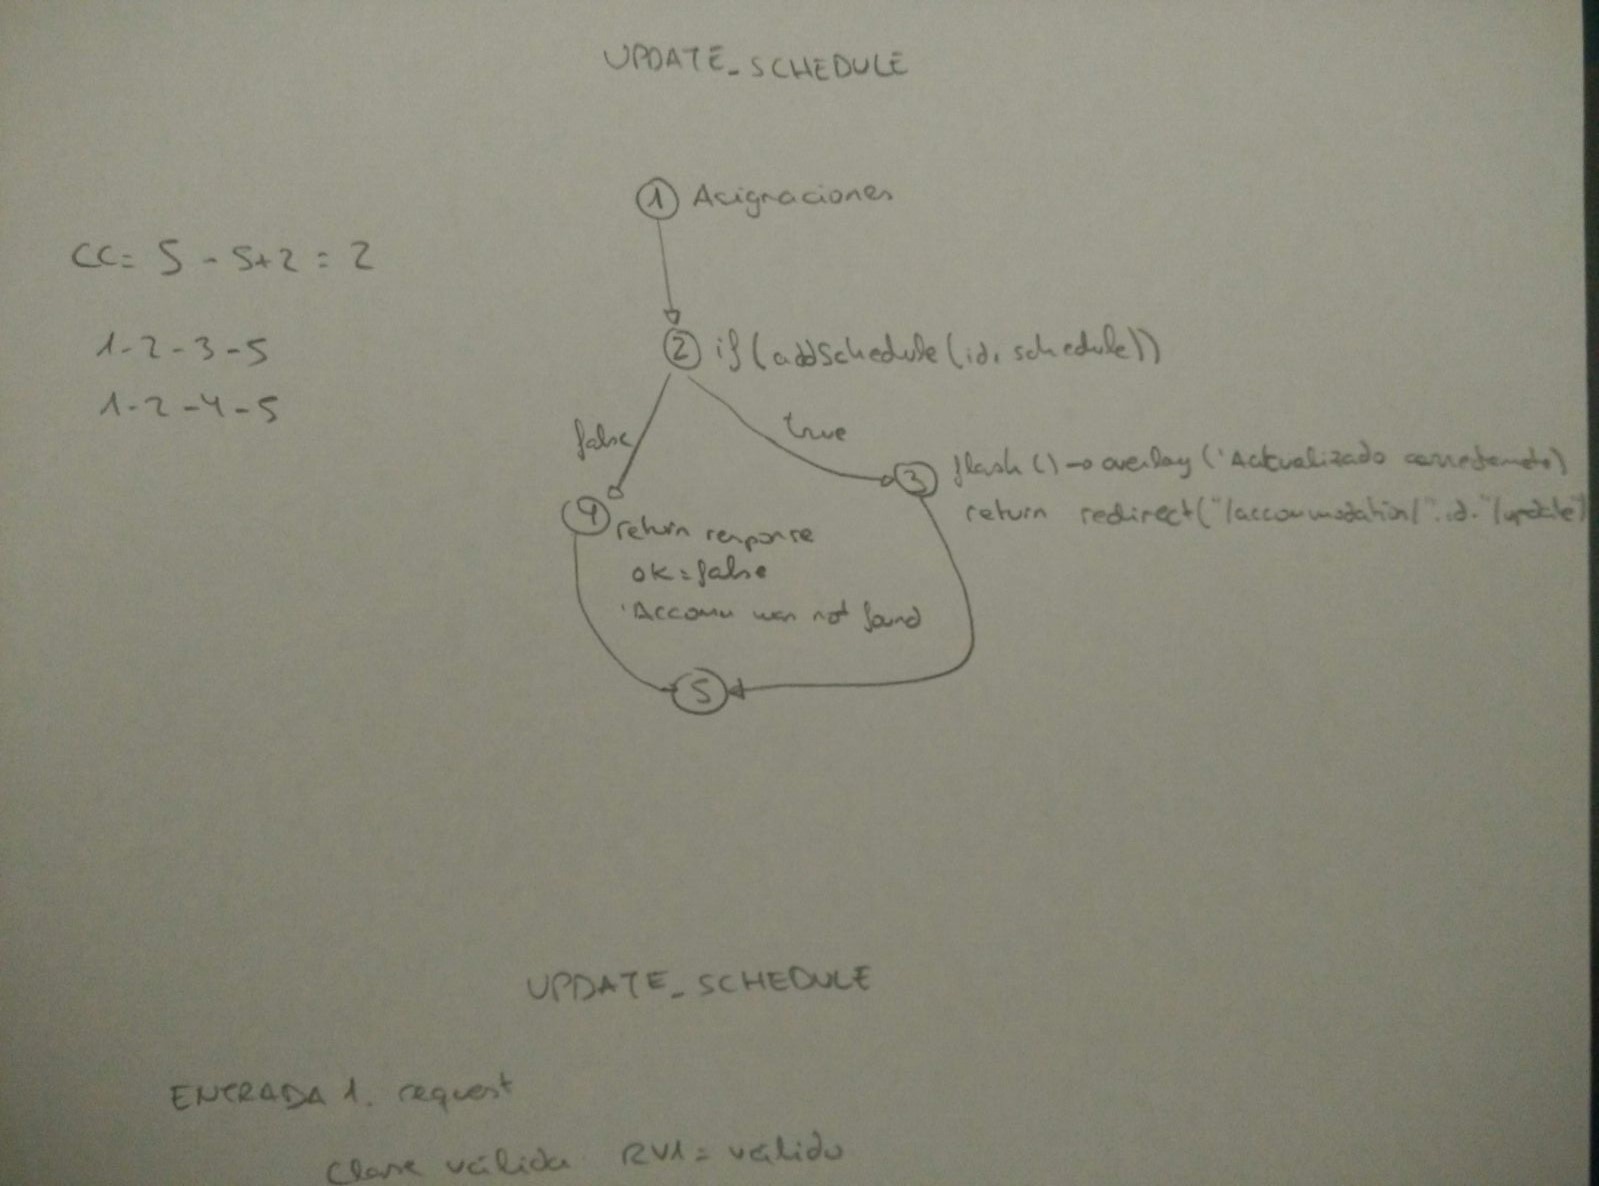 UPDATE_SCHEDULE
1 Asignaciones
CC= 5 - 5+2 = 2
1-2-3-5
1-2-4-5
2 if (addSchedule (id, schedule))
false
true
3 flash () -> overlay ('Actualizado correctamente)
return redirect("/accommodation/".id."/update")
4 return response
ok=false
'Accomm was not found
5
UPDATE_SCHEDULE
ENTRADA 1. request
Clase válida RV1 = válido